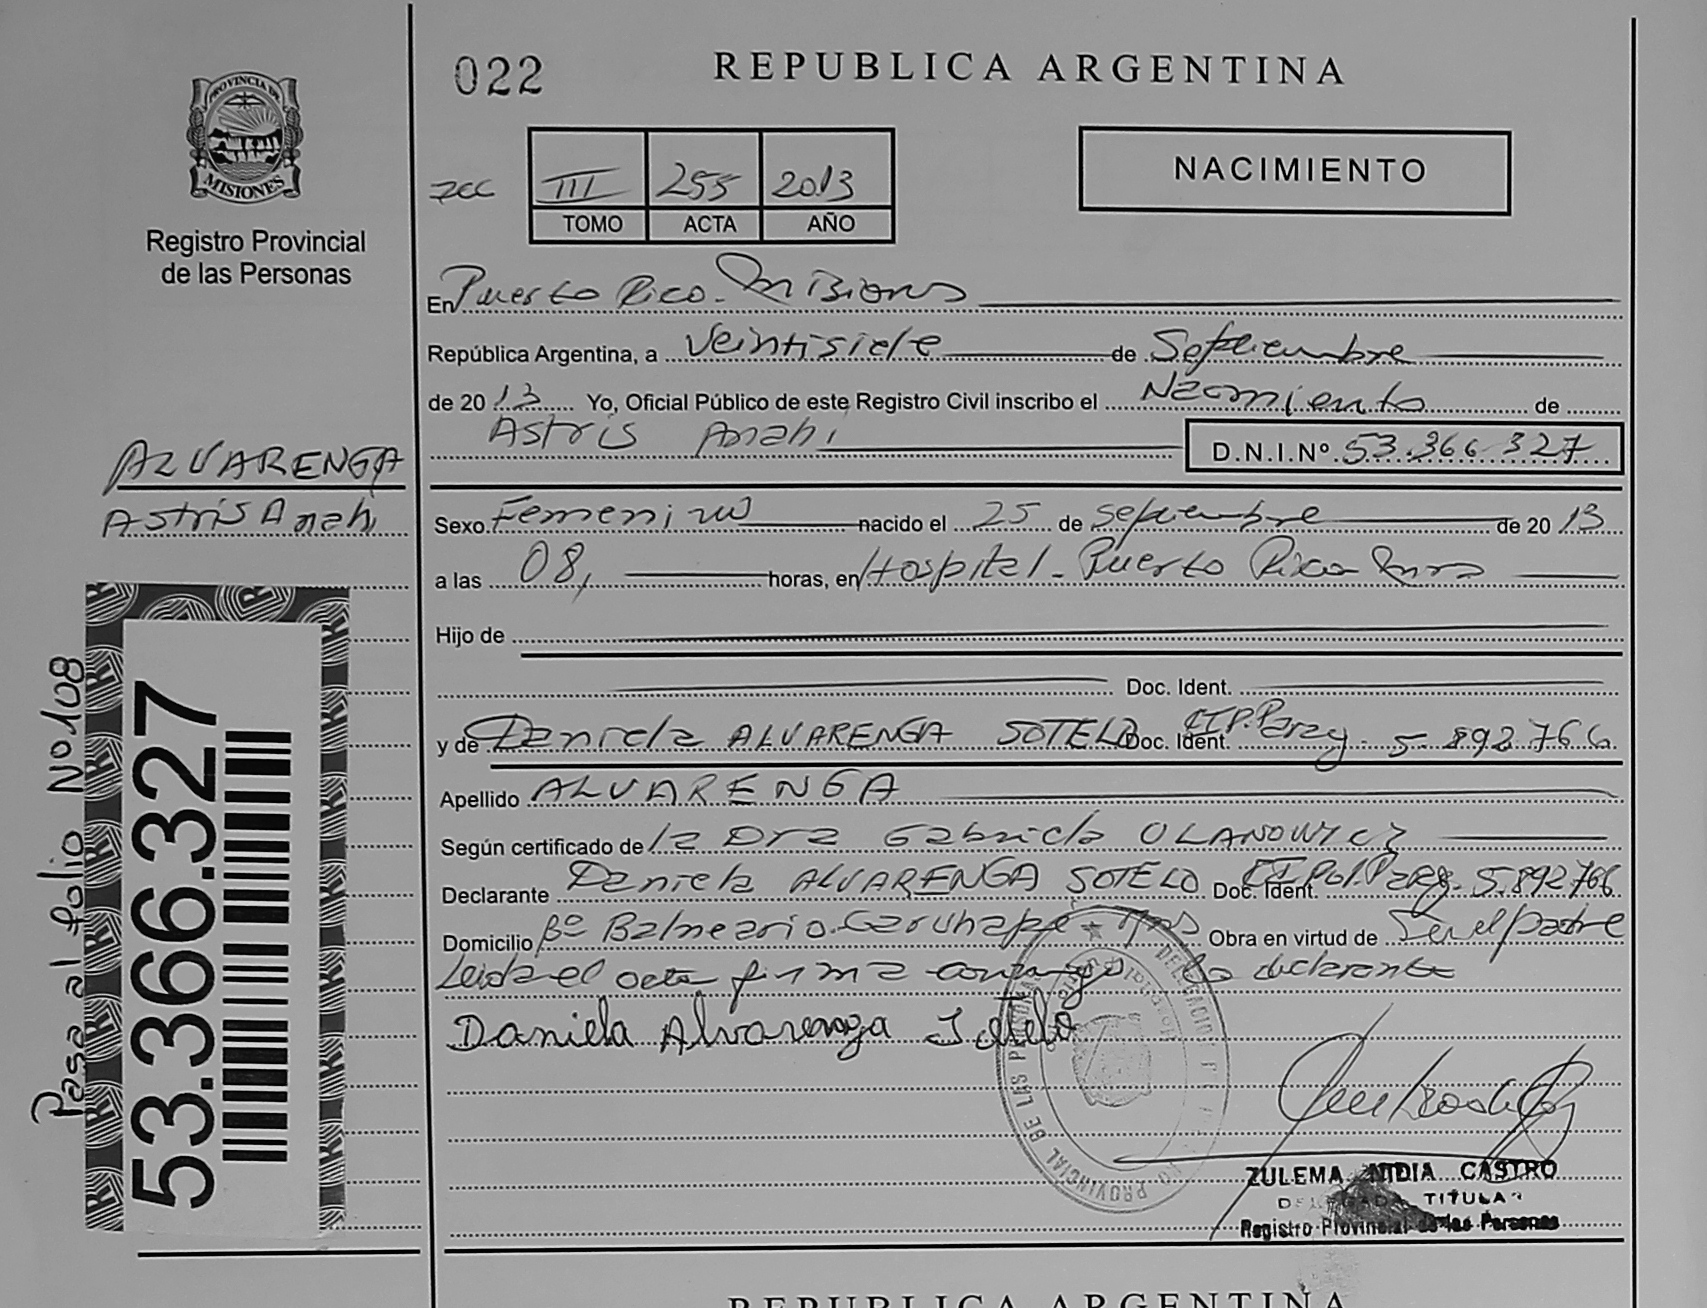 022
REPUBLICA ARGENTINA
PROVINCIA DE
MISIONES
Registro Provincial
de las Personas
III 255 2013
TOMO ACTA AÑO
NACIMIENTO
En Puerto Rico - Misiones
República Argentina, a veintisiete de Septiembre
de 20 13 Yo, Oficial Público de este Registro Civil inscribo el Nacimiento de
Astris Anahi D.N.I.Nº 53.366.327
ALVARENGA
Astris Anahi
Sexo Femenino nacido el 25 de septiembre de 20 13
a las 08, horas, en Hospital - Puerto Rico
Hijo de
Doc. Ident.
y de Daniela ALVARENGA SOTELO Doc. Ident. Parag. 5.892.766
Apellido ALVARENGA
Según certificado de la Dra Gabriela OLANOWICZ
Declarante Daniela ALVARENGA SOTELO Doc. Ident. CI Pol. Parag. 5.892.766
Domicilio Bº Balneario - Caruhape - Mns Obra en virtud de Ser el padre
Leida el acta firma conmigo la declarante
Daniela Alvarenga Sotelo
Pasa al folio Nº 108
53.366.327
ZULEMA NIDIA CASTRO
DELEGADA TITULAR
Registro Provincial de las Personas
REPUBLICA ARGENTINA